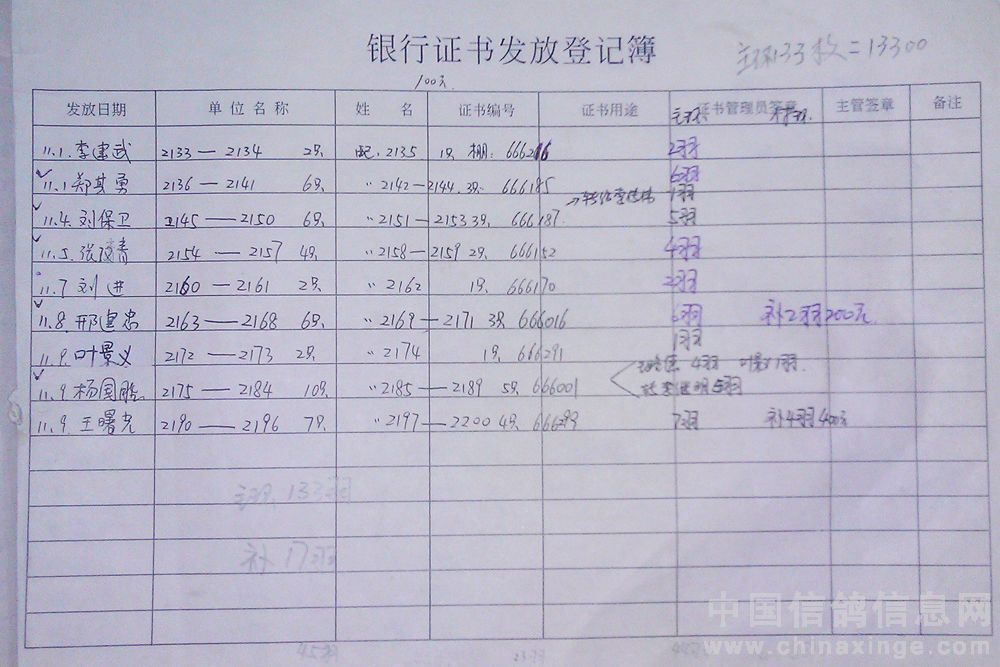 银行证书发放登记簿
主环133枚=13300
100元
发放日期 单位名称 姓 名 证书编号 证书用途 证书管理员签章 主管签章 备注
主环
11.1.李建武 2133—2134 2只 配. 2135 1只 棚: 666216 2羽
6羽
11.1郑其勇 2136—2141 6只 〃2142—2144.3只 666185 1羽
11.4.刘保卫 2145—2150 6只 〃2151—2153 3只 666187. 5羽
11.5.张 青 2154—2157 4只 〃2158—2159 2只 666152 4羽
11.7 刘进 2160—2161 2只 〃2162 1只 666170 2羽
11.8.邢建忠 2163—2168 6只 〃2169—2171 3只 666016 6羽 补2羽200元
1羽
11.9.叶景义 2172—2173 2只 〃2174 1只 666291
4羽 叶 1羽
11.9杨国 2175—2184 10只 〃2185—2189 5只 666001 5羽
11.9.王曙光 2190—2196 7只 〃2197—2200 4只 666299 7羽 补4羽400元
主环 133羽
补 17羽
45羽
中国信鸽信息网
www.chinaxinge.com